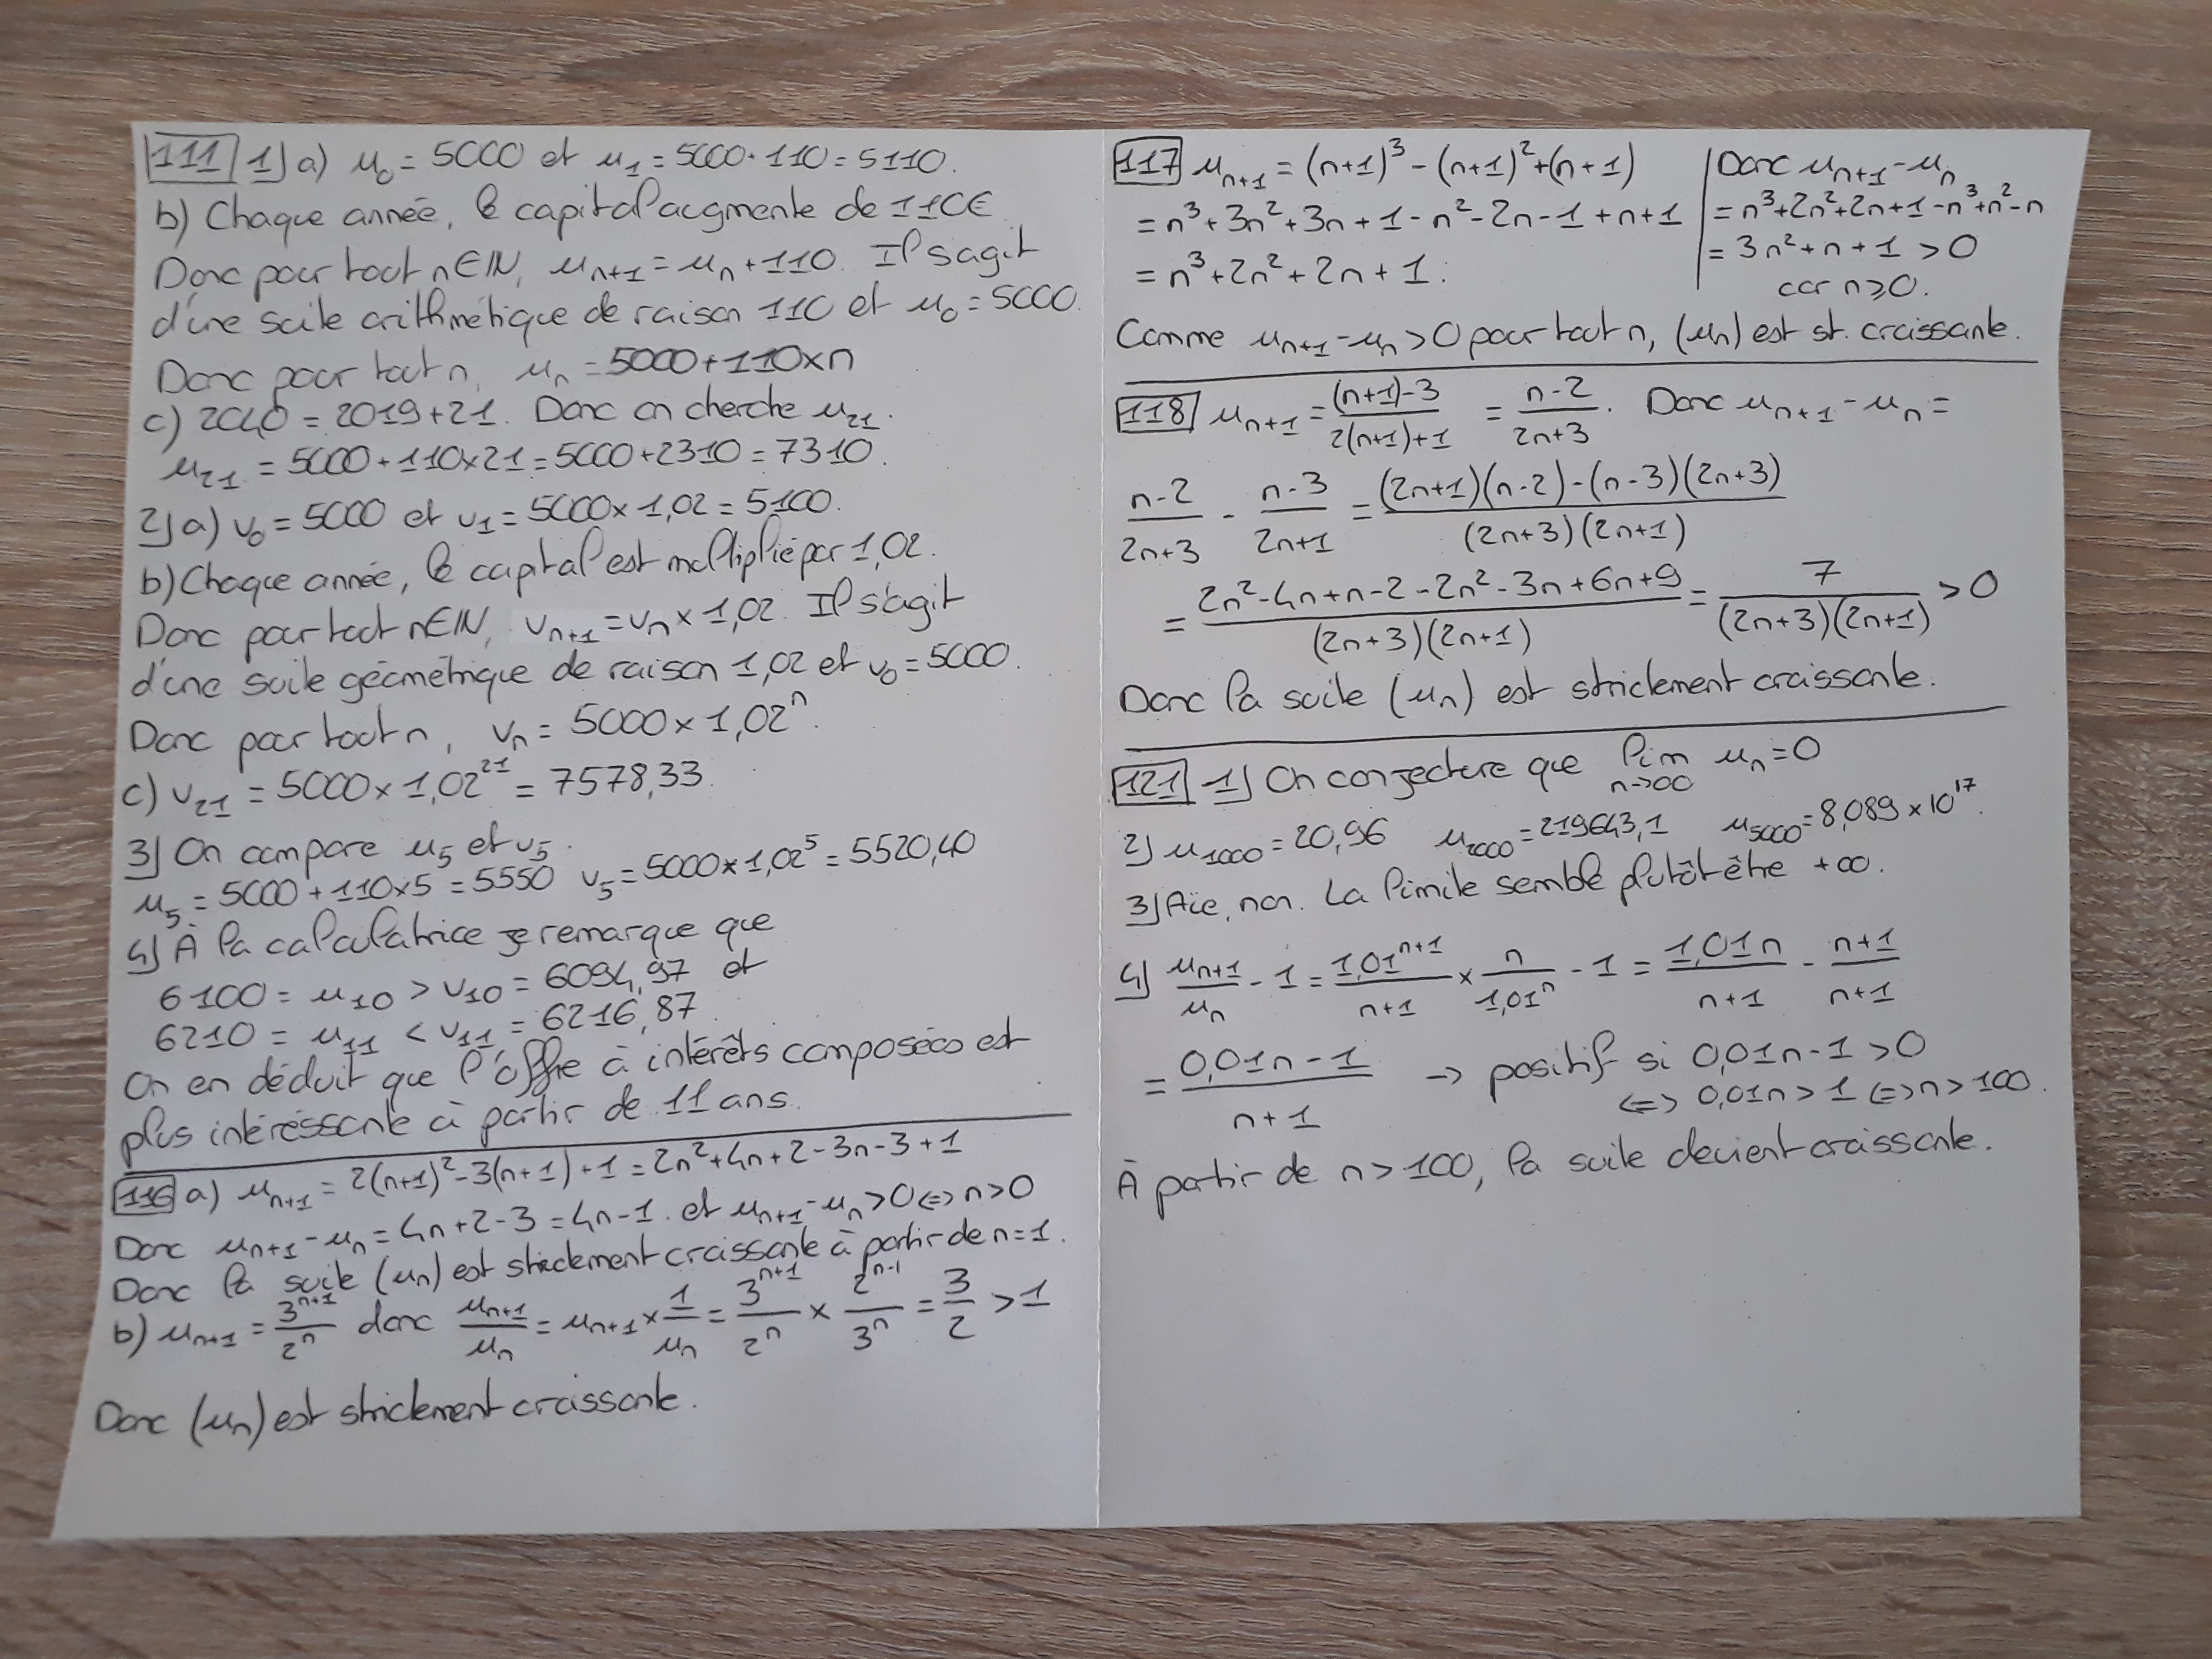 111 1) a) u₀ = 5000 et u₁ = 5000+110 = 5110.
b) Chaque année, le capital augmente de 110€
Donc pour tout n∈ℕ, uₙ₊₁ = uₙ + 110. Il s'agit
d'une suite arithmétique de raison 110 et u₀ = 5000.
Donc pour tout n, uₙ = 5000+110×n
c) 2040 = 2019+21. Donc on cherche u₂₁.
u₂₁ = 5000+110×21 = 5000+2310 = 7310.
2) a) v₀ = 5000 et v₁ = 5000×1,02 = 5100.
b) Chaque année, le capital est multiplié par 1,02.
Donc pour tout n∈ℕ, vₙ₊₁ = vₙ × 1,02. Il s'agit
d'une suite géométrique de raison 1,02 et v₀ = 5000.
Donc pour tout n, vₙ = 5000 × 1,02ⁿ.
c) v₂₁ = 5000 × 1,02²¹ = 7578,33.
3) On compare u₅ et v₅.
u₅ = 5000+110×5 = 5550 v₅ = 5000×1,02⁵ = 5520,40
4) À la calculatrice je remarque que
6100 = u₁₀ > v₁₀ = 6094,97 et
6210 = u₁₁ < v₁₁ = 6216,87.
On en déduit que l'offre à intérêts composés est
plus intéréssante à partir de 11 ans.
116 a) uₙ₊₁ = 2(n+1)² - 3(n+1) + 1 = 2n²+4n+2-3n-3+1
Donc uₙ₊₁ - uₙ = 4n+2-3 = 4n-1. et uₙ₊₁ - uₙ > 0 ⇔ n > 0
Donc la suite (uₙ) est strictement croissante à partir de n=1.
b) uₙ₊₁ = 3ⁿ⁺¹/2ⁿ donc uₙ₊₁/uₙ = uₙ₊₁ × 1/uₙ = 3ⁿ⁺¹/2ⁿ × 2ⁿ⁻¹/3ⁿ = 3/2 > 1
Donc (uₙ) est strictement croissante.
117 uₙ₊₁ = (n+1)³ - (n+1)² + (n+1)
= n³+3n²+3n+1-n²-2n-1+n+1
= n³+2n²+2n+1.
Donc uₙ₊₁ - uₙ
= n³+2n²+2n+1-n³+n²-n
= 3n²+n+1 > 0
car n≥0.
Comme uₙ₊₁ - uₙ > 0 pour tout n, (uₙ) est st. croissante.
118 uₙ₊₁ = ((n+1)-3)/(2(n+1)+1) = (n-2)/(2n+3). Donc uₙ₊₁ - uₙ =
(n-2)/(2n+3) - (n-3)/(2n+1) = ((2n+1)(n-2)-(n-3)(2n+3))/((2n+3)(2n+1))
= (2n²-4n+n-2-2n²-3n+6n+9)/((2n+3)(2n+1)) = 7/((2n+3)(2n+1)) > 0
Donc la suite (uₙ) est strictement croissante.
121 1) On conjecture que lim n→∞ uₙ = 0
2) u₁₀₀₀ = 20,96 u₂₀₀₀ = 219643,1 u₅₀₀₀ = 8,089×10¹⁷.
3) Aïe, non. La limite semble plutôt être +∞.
4) uₙ₊₁/uₙ - 1 = 1,01ⁿ⁺¹/(n+1) × n/1,01ⁿ - 1 = 1,01n/(n+1) - (n+1)/(n+1)
= (0,01n-1)/(n+1) → positif si 0,01n-1 > 0
⇔ 0,01n > 1 ⇔ n > 100.
À partir de n > 100, la suite devient croissante.